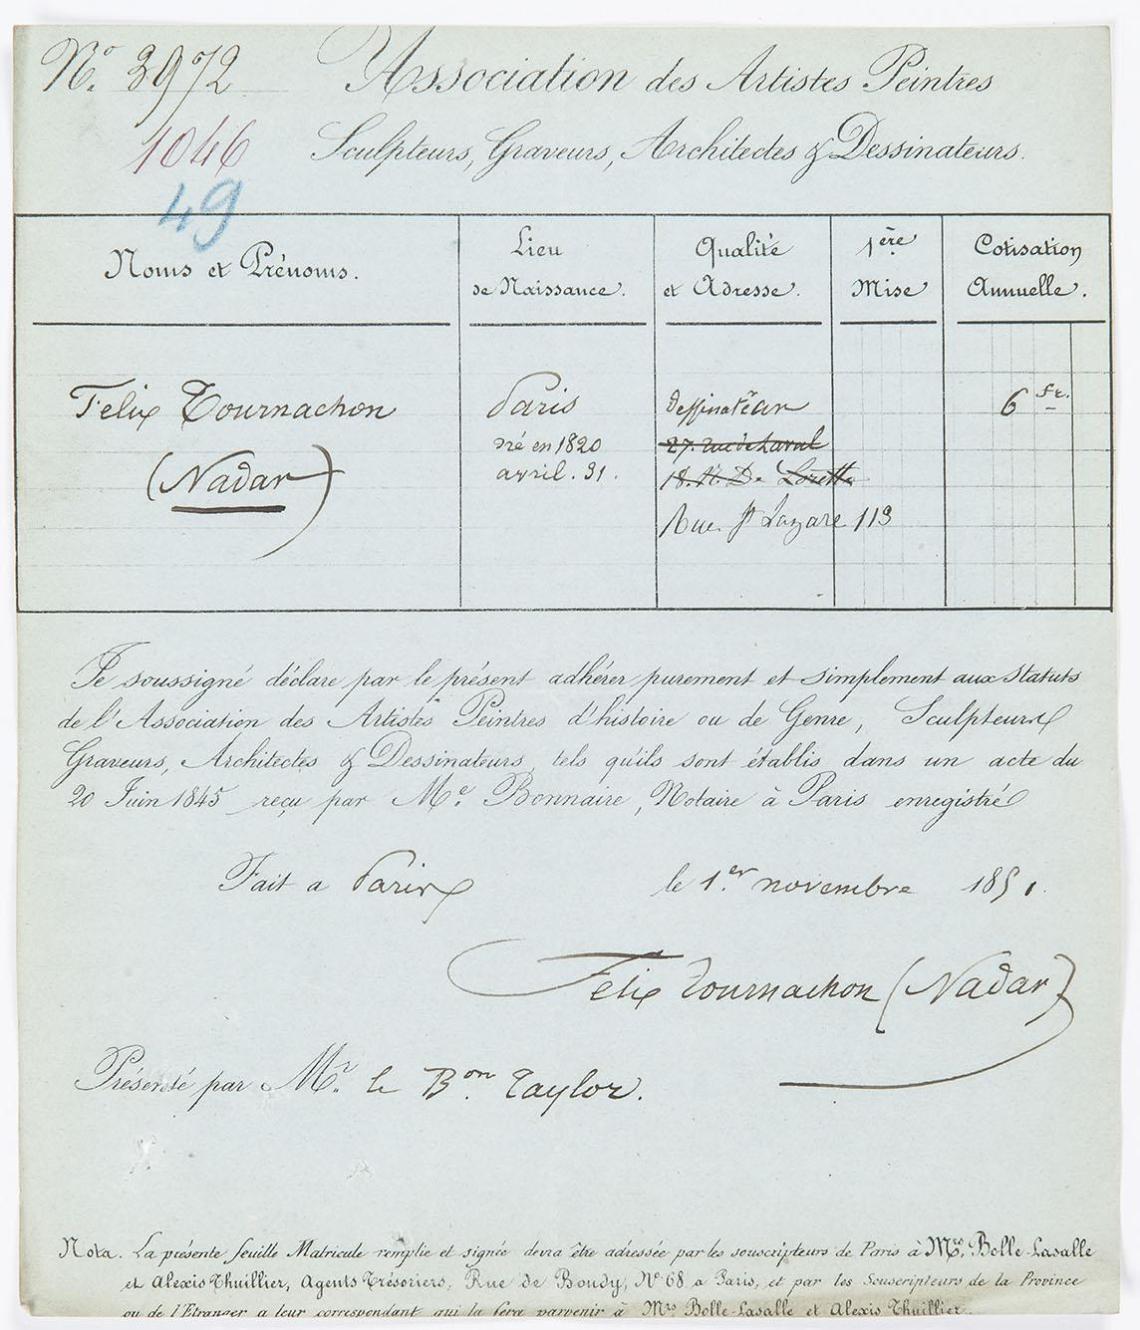 N.° 3972
Association des Artistes Peintres
1046
Sculpteurs, Graveurs, Architectes & Dessinateurs.
49
Noms et Prénoms.
Lieu
de Naissance.
Qualité
et Adresse.
1ère
Mise
Cotisation
Annuelle.
Felix Tournachon
(Nadar)
Paris
né en 1820
avril. 31.
Dessinateur
27. rue de Laval
18. N. D. Lorette
Rue St Lazare 113
6 fr.
Je soussigné déclare par le présent adhérer purement et simplement aux Statuts
de l'Association des Artistes Peintres d'histoire ou de Genre, Sculpteurs
Graveurs, Architectes & Dessinateurs, tels qu'ils sont établis dans un acte du
20 Juin 1845 reçu par Me. Bonnaire, Notaire à Paris enregistré
Fait a Paris
le 1.er novembre 1851.
Felix Tournachon (Nadar)
Présenté par Mr. le Bon. Taylor.
Nota. La présente feuille Matricule remplie et signée devra être adressée par les souscripteurs de Paris à Mrs. Bolle-Lasalle
et Alexis Thuillier, Agents Trésoriers, Rue de Bondy, N° 68 a Paris, et par les Souscripteurs de la Province
ou de l'Etranger a leur correspondant qui la fera parvenir à Mrs Bolle-Lasalle et Alexis Thuillier.